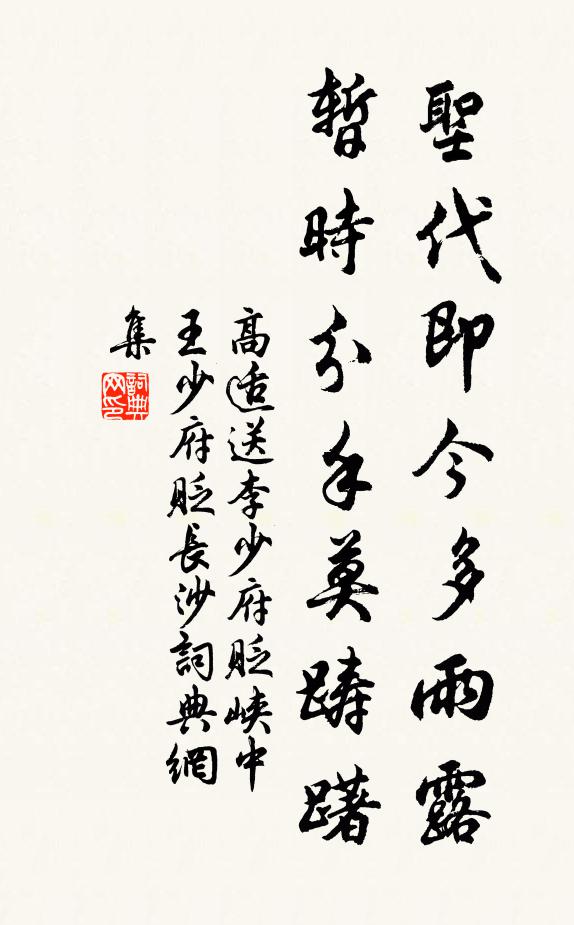 聖代即今多雨露
暫時分手莫踌躇
高適送李少府貶峽中
王少府貶長沙詞典網
集
詞典
网印